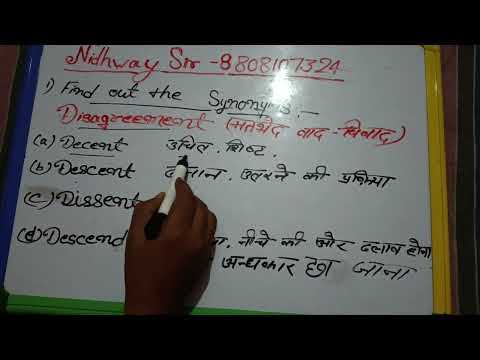 Nidhway Sir - 8808107324
1) Find out the Synonyms :-
Disagreement (मतभेद वाद-विवाद)
(a) Decent उचित, शिष्ट.
(b) Descent ढलान, उतरने की प्रक्रिया
(c) Dissent
(d) Descend नीचे की ओर ढलाव होना
अन्धकार छा जाना